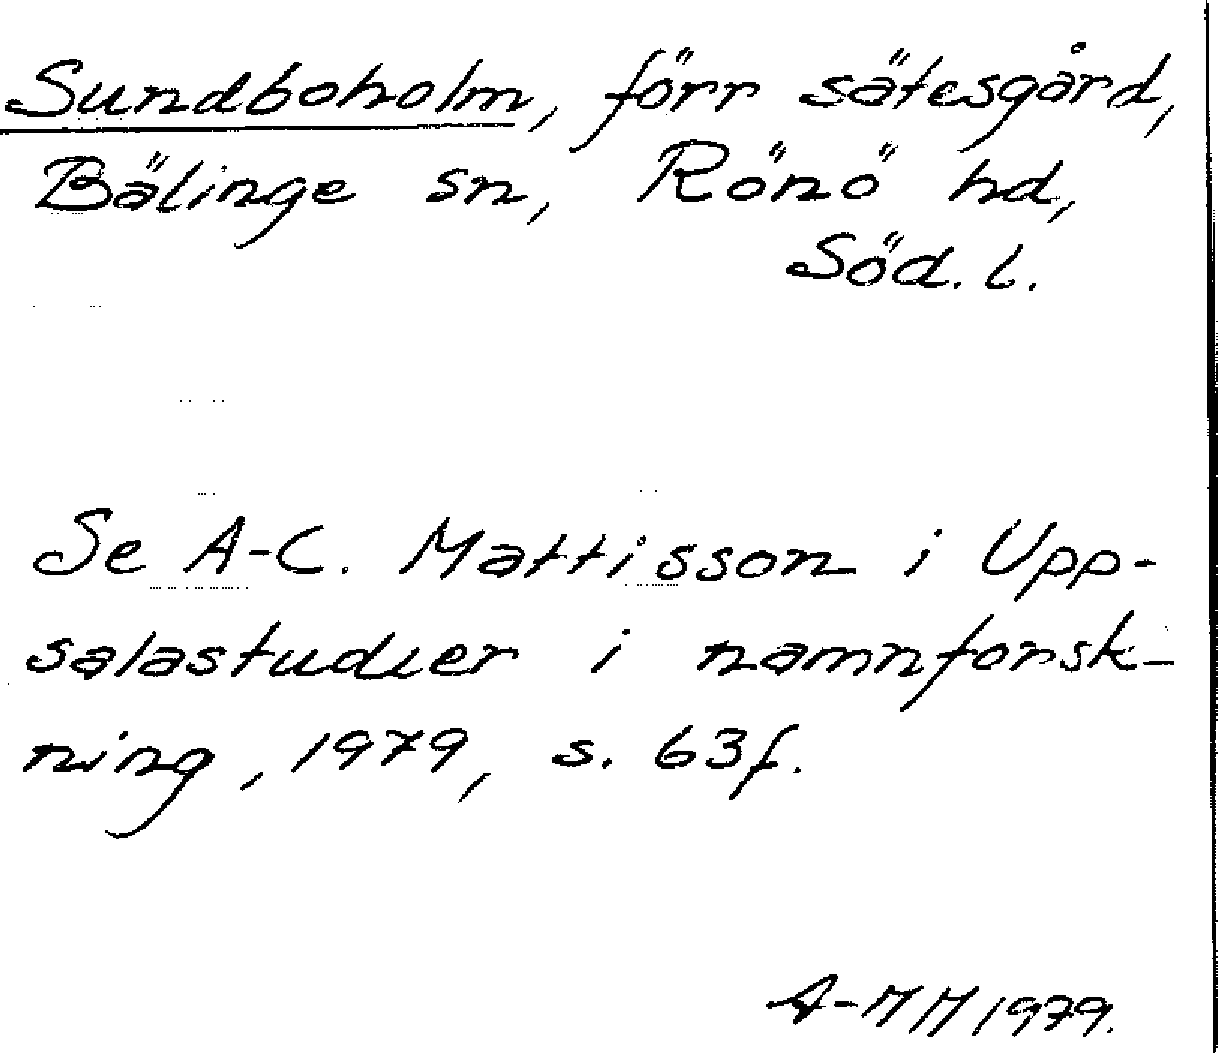 Sundboholm, förr sätesgård,
Bälinge sn, Rönö hd,
Söd. l.
Se A-C. Mattisson i Upp-
salastudier i namnforsk-
ning, 1979, s. 63f.
A-MM 1979.